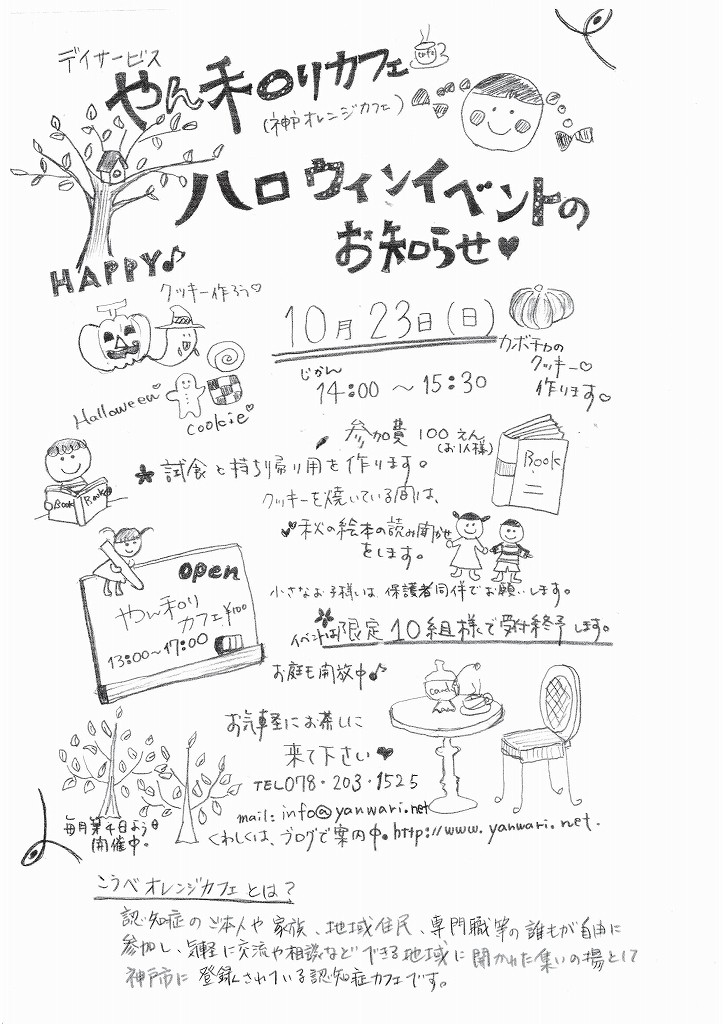 デイサービス
やん和りカフェ
cafe
(神戸オレンジカフェ)
ハロウィンイベントの
お知らせ♥
HAPPY♪
クッキー作ろう♡
10月23日(日)
カボチャの
クッキー♡
作ります♡
じかん
14:00 〜 15:30
Halloween♡
cookie♡
参加費 100えん
(お1人様)
Book
Book
試食と持ち帰り用を作ります。
クッキーを焼いている間は、
秋の絵本の読み聞かせ
をします。
open
やん和り
カフェ¥100
13:00〜17:00
小さなお子様は保護者同伴でお願いします。
イベントは限定10組様で受付終了します。
お庭も開放中♪
お気軽にお茶しに
来て下さい♥
TEL078・203・1525
mail: info@yanwari.net
毎月第4日よう日
開催中。
くわしくは、ブログで案内中。http://www.yanwari.net.
こうべオレンジカフェとは?
認知症のご本人や家族、地域住民、専門職等の誰もが自由に
参加し、気軽に交流や相談などできる地域に開かれた集いの場として
神戸市に登録されている認知症カフェです。